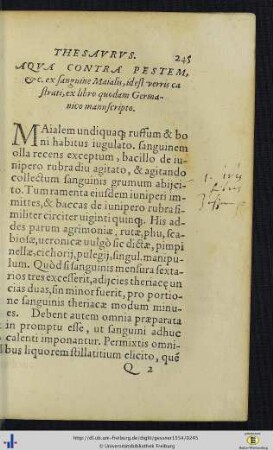 THESAVRVS. 245
AQVA CONTRA PESTEM,
&c. ex sanguine Maialis, id est verris ca
strati, ex libro quodam Germa-
nico manuscripto.
MAialem undiquaq; ruffum & bo
ni habitus iugulato. sanguinem
olla recens exceptum, bacillo de iu-
nipero rubra diu agitato, & agitando
collectum sanguinis grumum abijci-
to. Tum ramenta eiusdem iuniperi im-
mittes, & baccas de iunipero rubra si-
militer circiter uiginti quinq;. His ad-
des parum agrimoniæ, rutæ, phu, sca-
biosæ, ueronicæ uulgò sic dictæ, pimpi
nellæ, cichorij, pulegij, singul. manipu-
lum. Quòd si sanguinis mensura sexta-
rios tres excesserit, adijcies theriacæ un
cias duas, sin minor fuerit, pro portio-
ne sanguinis theriacæ modum minu-
es. Debent autem omnia præparata
in promptu esse, ut sanguini adhuc
calenti imponantur. Permixtis omni-
bus liquorem stillatitium elicito, qué
Q 2
http://dl.ub.uni-freiburg.de/diglit/gessner1554/0245
© Universitätsbibliothek Freiburg